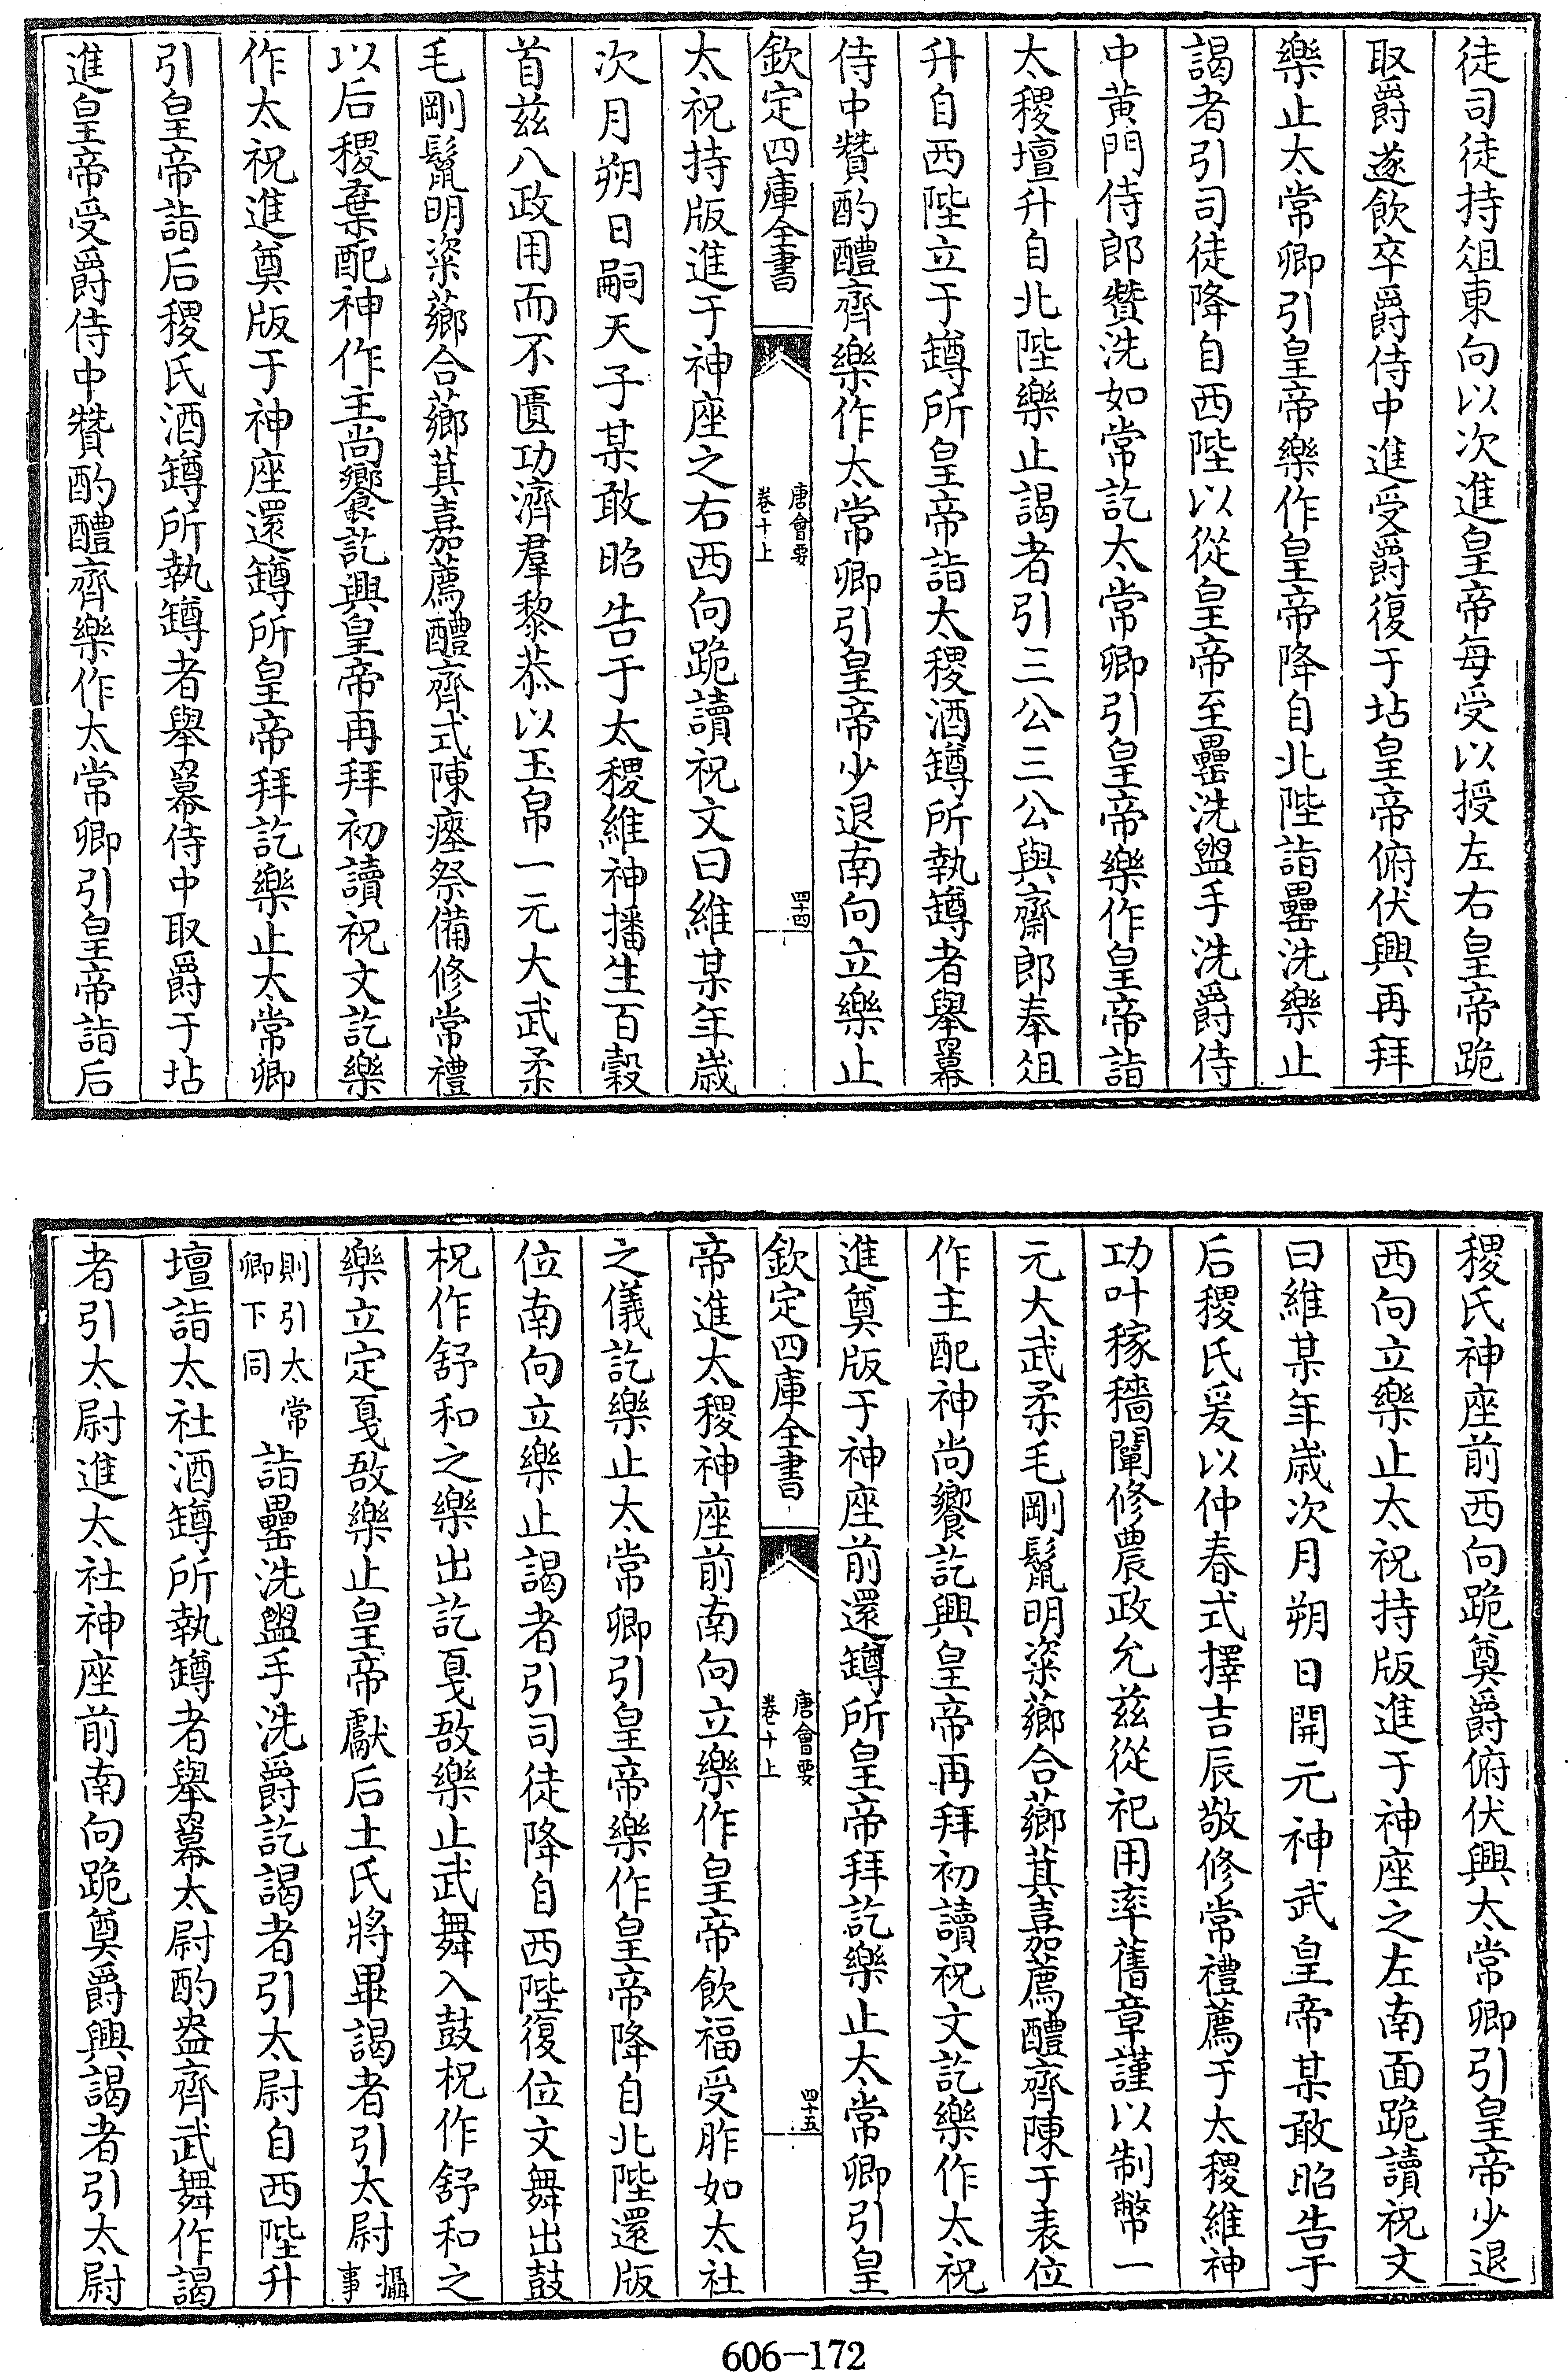 徒司徒持俎東向以次進皇帝每受以授左右皇帝跪
取爵遂飲卒爵侍中進受爵復于坫皇帝俯伏興再拜
樂止太常卿引皇帝樂作皇帝降自北陛詣罍洗樂止
謁者引司徒降自西陛以從皇帝至罍洗盥手洗爵侍
中黄門侍郎賛洗如常訖太常卿引皇帝樂作皇帝詣
太稷壇升自北陛樂止謁者引三公三公與齋郎奉俎
升自西陛立于罇所皇帝詣太稷酒罇所執罇者舉冪
侍中贊酌醴齊樂作太常卿引皇帝少退南向立樂止
欽定四庫全書
唐會要
卷十上
四十四
太祝持版進于神座之右西向跪讀祝文曰維某年歲
次月朔日嗣天子某敢昭告于太稷維神播生百穀
首兹八政用而不匱功濟羣黎恭以玉帛一元大武柔
毛剛鬛明粢薌合薌萁嘉薦醴齊式陳瘞祭備修常禮
以后稷棄配神作主尚饗訖興皇帝再拜初讀祝文訖樂
作太祝進奠版于神座還罇所皇帝拜訖樂止太常卿
引皇帝詣后稷氏酒罇所執罇者舉冪侍中取爵于坫
進皇帝受爵侍中贊酌醴齊樂作太常卿引皇帝詣后
稷氏神座前西向跪奠爵俯伏興太常卿引皇帝少退
西向立樂止太祝持版進于神座之左南面跪讀祝文
曰維某年歲次月朔日開元神武皇帝某敢昭告于
后稷氏爰以仲春式擇吉辰敬修常禮薦于太稷維神
功叶稼穡闡修農政允兹從祀用率舊章謹以制幣一
元大武柔毛剛鬛明粢薌合薌萁嘉薦醴齊陳于表位
作主配神尚饗訖興皇帝再拜初讀祝文訖樂作太祝
進奠版于神座前還罇所皇帝拜訖樂止太常卿引皇
欽定四庫全書
唐會要
卷十上
四十五
帝進太稷神座前南向立樂作皇帝飲福受胙如太社
之儀訖樂止太常卿引皇帝樂作皇帝降自北陛還版
位南向立樂止謁者引司徒降自西陛復位文舞出鼓
柷作舒和之樂出訖戛敔樂止武舞入鼓柷作舒和之
樂立定戛敔樂止皇帝獻后土氏將畢謁者引太尉攝事
則引太常卿下同詣罍洗盥手洗爵訖謁者引太尉自西陛升
壇詣太社酒罇所執罇者舉冪太尉酌盎齊武舞作謁
者引太尉進太社神座前南向跪奠爵興謁者引太尉
606-172